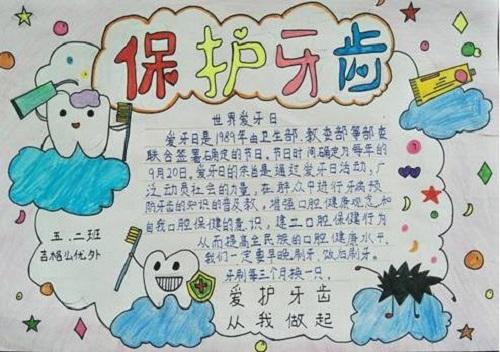 保护牙齿
世界爱牙日
爱牙日是1989年由卫生部、教委部等部委
联合签署确定的节日,节日时间确定为每年的
9月20日。爱牙日的宗旨是通过爱牙日活动,广
泛动员社会的力量,在群众中进行牙病预
防牙齿的知识的普及教,增强口腔健康观念和
自我口腔保健的意识,建立口腔保健行为
从而提高全民族的口腔健康水平。
我们一定要早晚刷牙,饭后刷牙。
牙刷每三个月换一只。
五、二班
爱护牙齿
从我做起